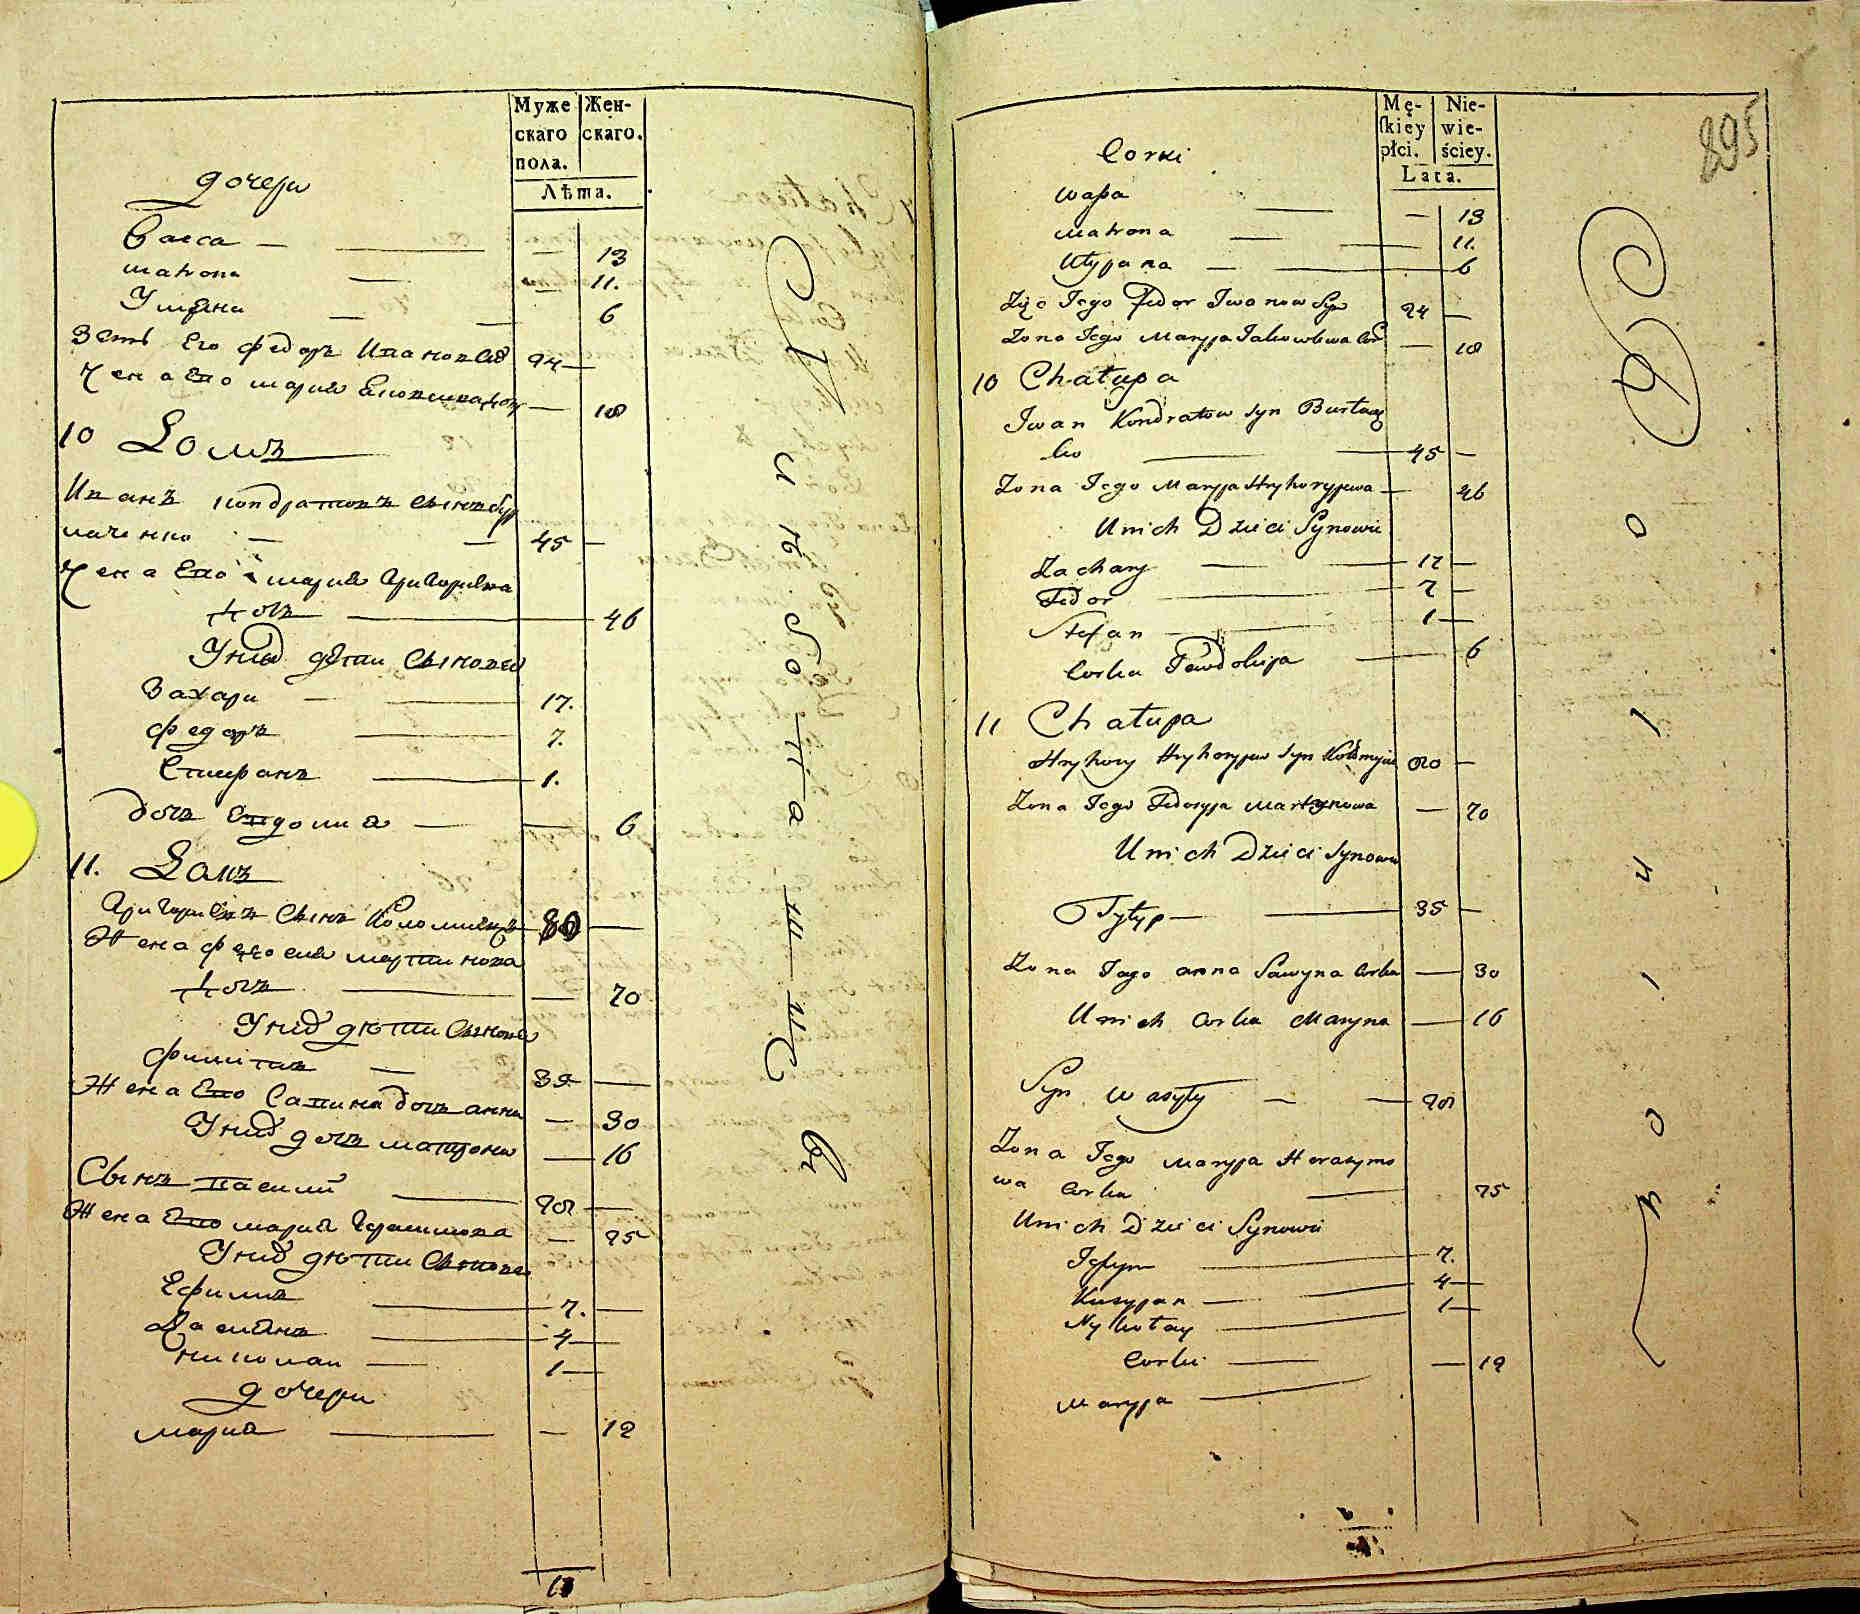 Муже
скаго
пола.
Жен-
скаго.
Лѣта.
дочери
Васса — — 13
матрона — — 11.
Улияна — — 6
Зять Его Федоръ Ивановъ Сы 24 —
Жена Его мария — 18
10 Домъ
Иванъ кондратовъ Сынъ Бур
лаченко — 45 —
Жена Его мария Григориева
дочь — 46
У них дѣти Сыновья
Захари — 17.
Федоръ — 7.
Стефанъ — 1.
дочь Евдокия — 6
11. Домъ
Григориевъ Сынъ Коломиецъ 80 —
Жена Федосия мартинова
дочь — 70
У них дѣти Сынове
Филипъ — 35 —
Жена Его Савина дочь анна — 30
У них дочь матрона — 16
Сынъ василий — 28 —
Жена Его мария Герасимова — 25
У них дѣти Сынове
Ефимъ — 7. —
Касиянъ — 4 —
николаи — 1 —
дочери
мария — 12
Mę-
skiey
płci.
Nie-
wie-
ściey.
Lata.
895
Corki
Waßa — 13
Matrona — 11.
Ulyjana — 6
Zięc Jego Fedor Iwanow Syn 24 —
Zona Jego Maryja Jakowlewa Cor — 18
10 Chałupa
Iwan Kondratow Syn Burłacz
ko — 45 —
Zona Jego Maryja Hryhoryjewa — 46
U nich Dzieci Synowie
Zachary — 17 —
Fedor — 7 —
Stefan — 1 —
Corka Jewdokija — 6
11 Chałupa
Hryhory Hryhoryjew Syn Kołomyjec 80 —
Zona Jego Fedosyja Martynowa — 70
U nich Dzieci Synowie
Fylyp — 35 —
Zona Jego anna Sawyna Corka — 30
U nich Corka Maryna — 16
Syn Wasyly — 28
Zona Jego Maryja Herasymo
wa Corka — 25
U nich Dzieci Synowie
Jefym — 7.
Kasyjan — 4 —
Nykołay — 1 —
Corki — 12
Maryja —